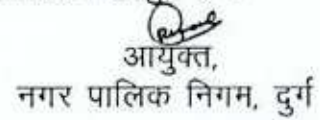 आयुक्त,
नगर पालिक निगम, दुर्ग